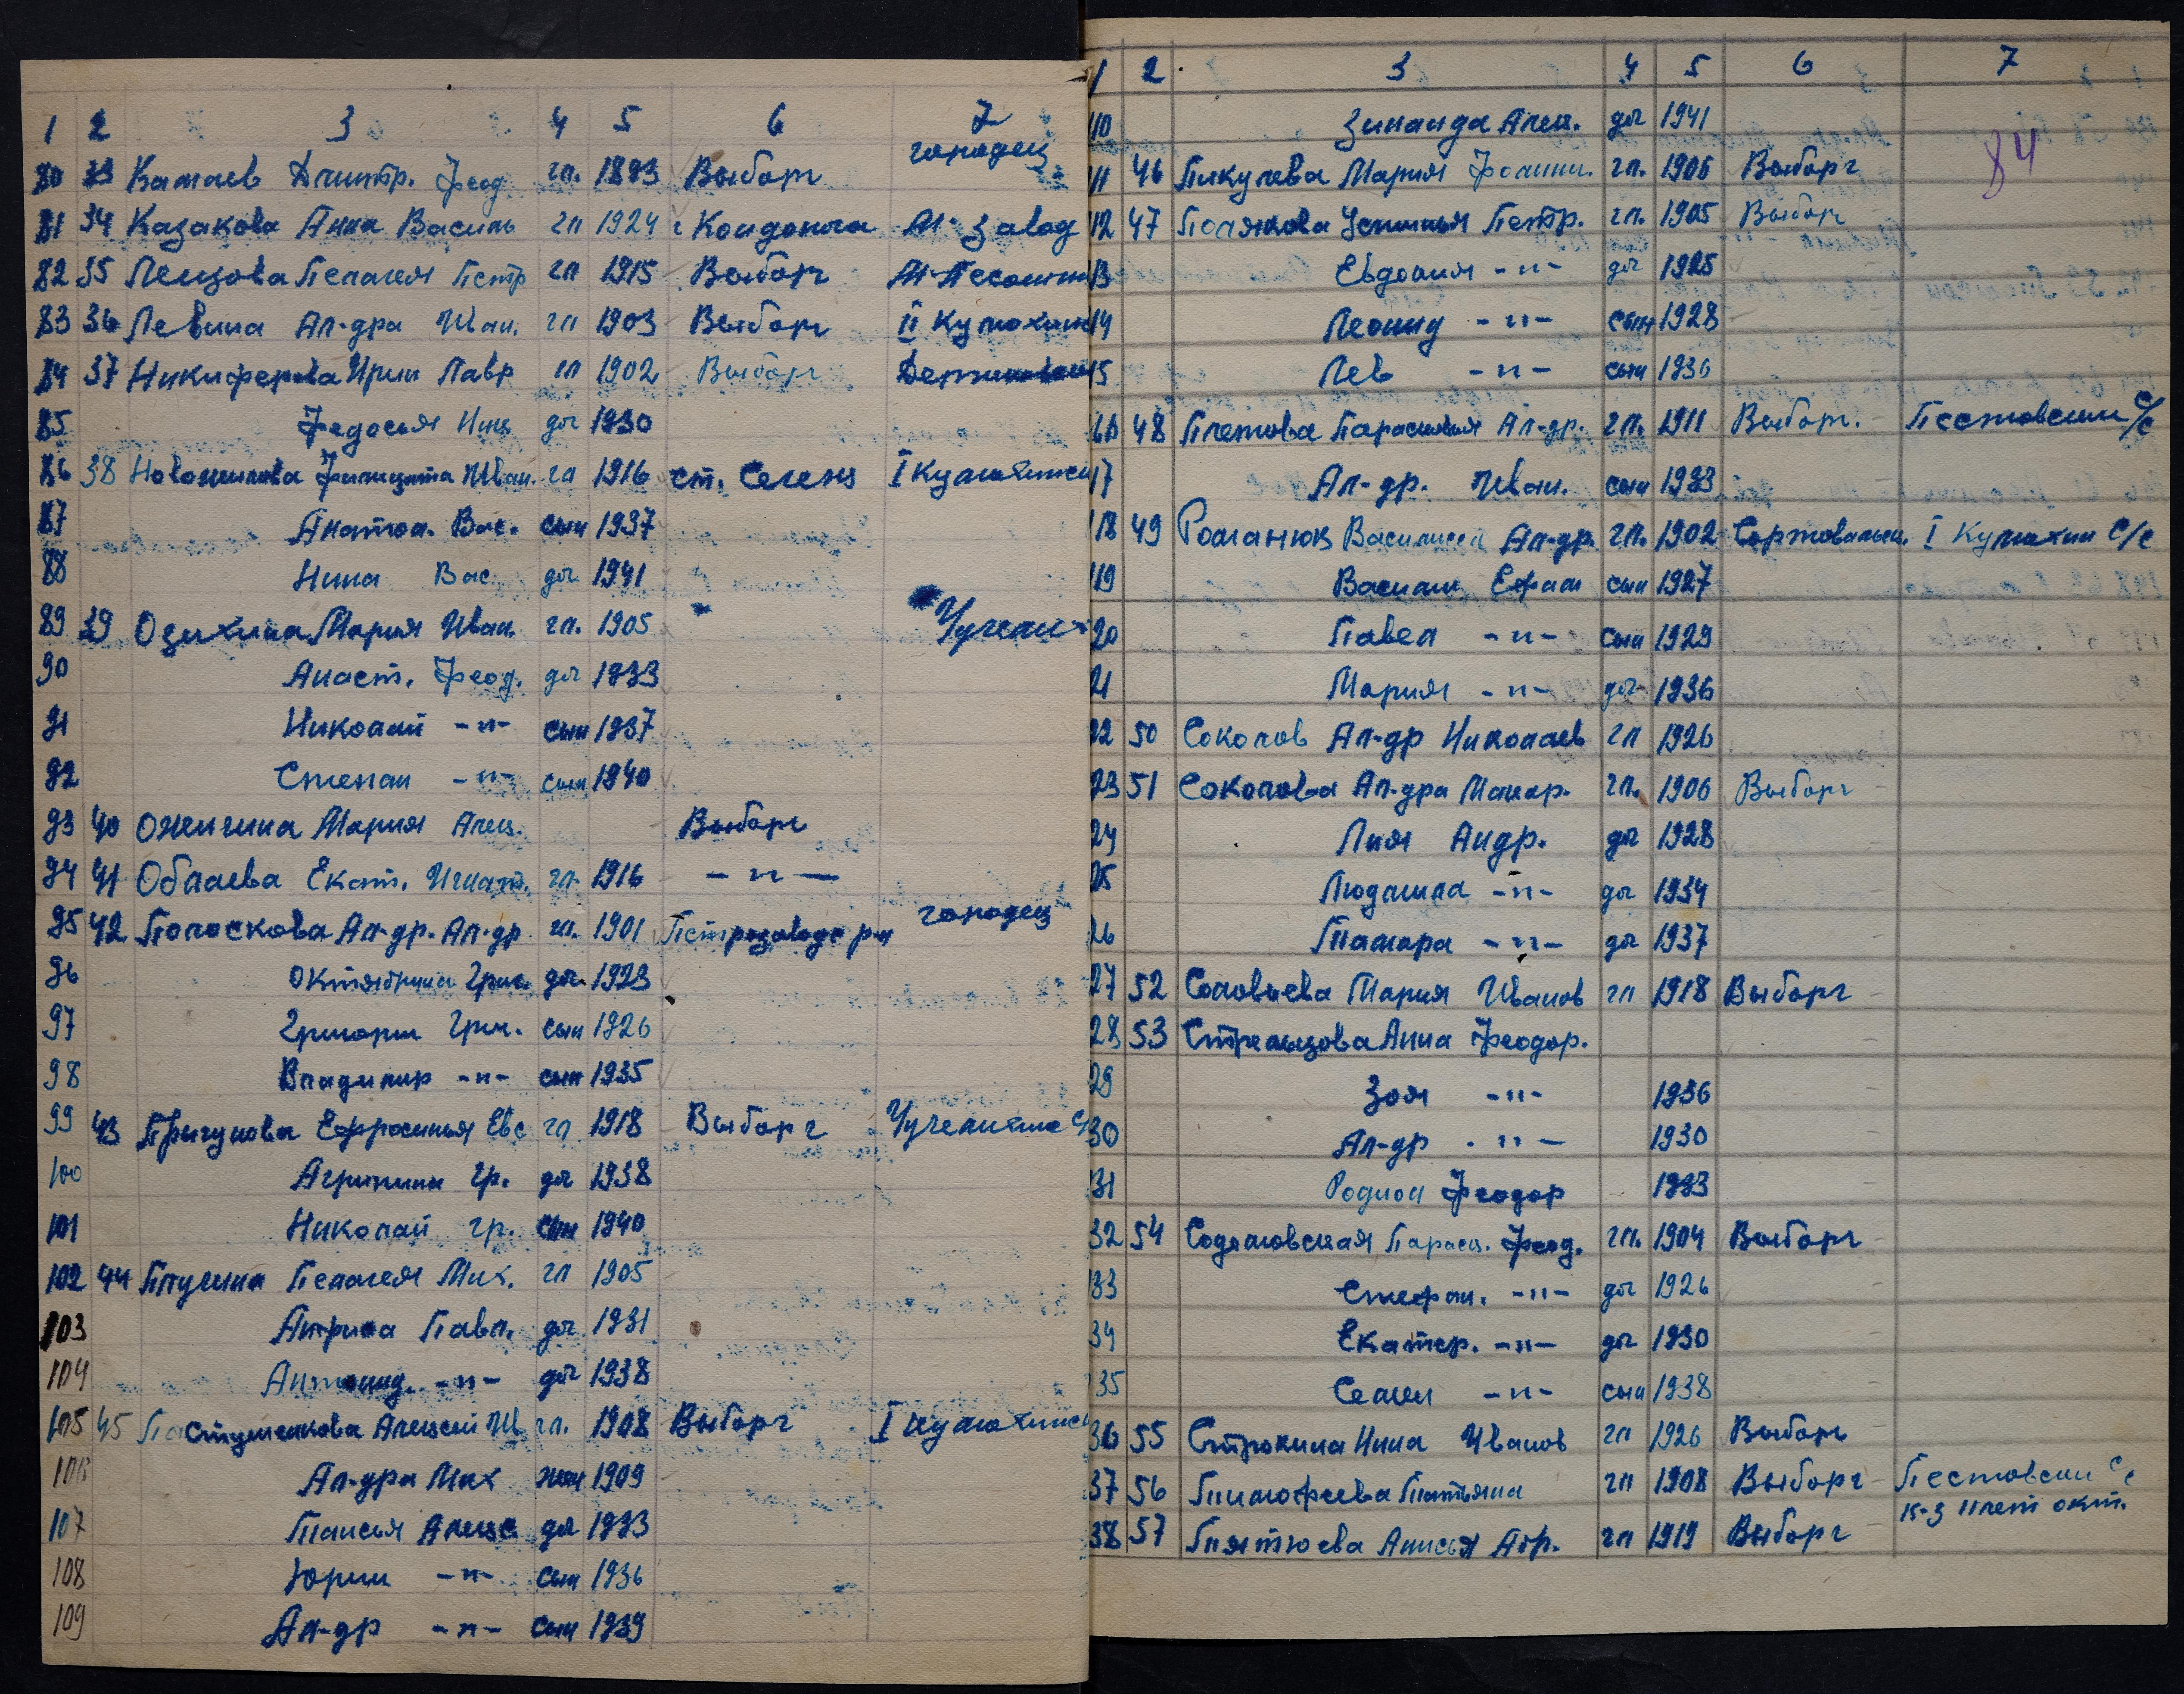 1 2 3 4 5 6 7
80 33 Камаев Дмитр. Феод. гл. 1893 Выборг городец
81 34 Казакова Анна Василь гл 1924 г Кондопога Ал-Завод
82 35 Пенцова Пелагея Петр гл 1915 Выборг
83 36 Левина Ал-дра Иван. гл 1903 Выборг II Кумохин
84 37 Никиферова Ирин Лавр гл 1902 Выборг
85 Федосья Ник доч 1930
86 38 Новожилова Фелицата Иван. гл 1916 ст. Сегежа I Кумохинск
87 Анатол. Вас. сын 1937
88 Нина Вас доч 1941
89 39 Озихина Мария Иван. гл. 1905 Чучели
90 Анаст. Феод. доч 1933
91 Николай -"- сын 1937
92 Степан -"- сын 1940
93 40 Ожигина Мария Алек. Выборг
94 41 Облаева Екат. Игнат. гл. 1916 -"-
95 42 Полоскова Ал-др. Ал-др гл. 1901 Петрозаводс р-н городец
96 Октябрина Григ. доч 1923
97 Григории Григ. сын 1926
98 Владимир -"- сын 1935
99 43 Пригунова Ефросинья Евс гл 1918 Выборг
100 Агрипина Гр. доч 1938
101 Николай Гр. сын 1940
102 44 Плугина Пелагея Мих. гл 1905
103 Павл. доч 1931
104 Антонид. -"- доч 1938
105 45 Пастушенкова Алексей Ив гл. 1908 Выборг I Кумохинск
106 Ал-дра Мих жен 1909
107 Таисья Алекс доч 1933
108 Юрии -"- сын 1936
109 Ал-др -"- сын 1939
1 2 3 4 5 6 7
110 Зинаида Алек. доч 1941
84
111 46 Пикулева Мария Иоанни. гл. 1906 Выборг
112 47 Полякова Устинья Петр. гл. 1905 Выборг
13 Евдокия -"- доч 1925
14 Леонид -"- сын 1928
15 Лев -"- сын 1936
116 48 Плетова Парасковья Ал-др. гл. 1911 Выборг. Пестовскии с/с
17 Ал-др. Иван. сын 1933
118 49 Романюк Василиса Ал-др. гл. 1902 Сортовальск. I Кумохин с/с
119 Васили Ефим сын 1927
20 Павел -"- сын 1929
21 Мария -"- доч 1936
22 50 Соколов Ал-др Николаев гл 1926
23 51 Соколова Ал-дра Макар. гл. 1906 Выборг
24 Лия Андр. доч 1928
25 Людмила -"- доч 1934
26 Тамара -"- доч 1937
27 52 Соловьева Мария Иванов гл 1918 Выборг
28 53 Стрельцова Анна Феодор.
29 Зоя -"- 1936
30 Ал-др -"- 1930
31 Родион Феодор 1933
32 54 Содомовская Параск. Феод. гл. 1904 Выборг
33 Стефан. -"- доч 1926
34 Екатер. -"- доч 1930
35 Семен -"- сын 1938
36 55 Строкина Нина Иванов гл 1926 Выборг
37 56 Тимофеева Татьяна гл 1908 Выборг Пестовски с/с
к-з II лет окт.
38 57 Тиятюева Анисья Абр. гл 1919 Выборг